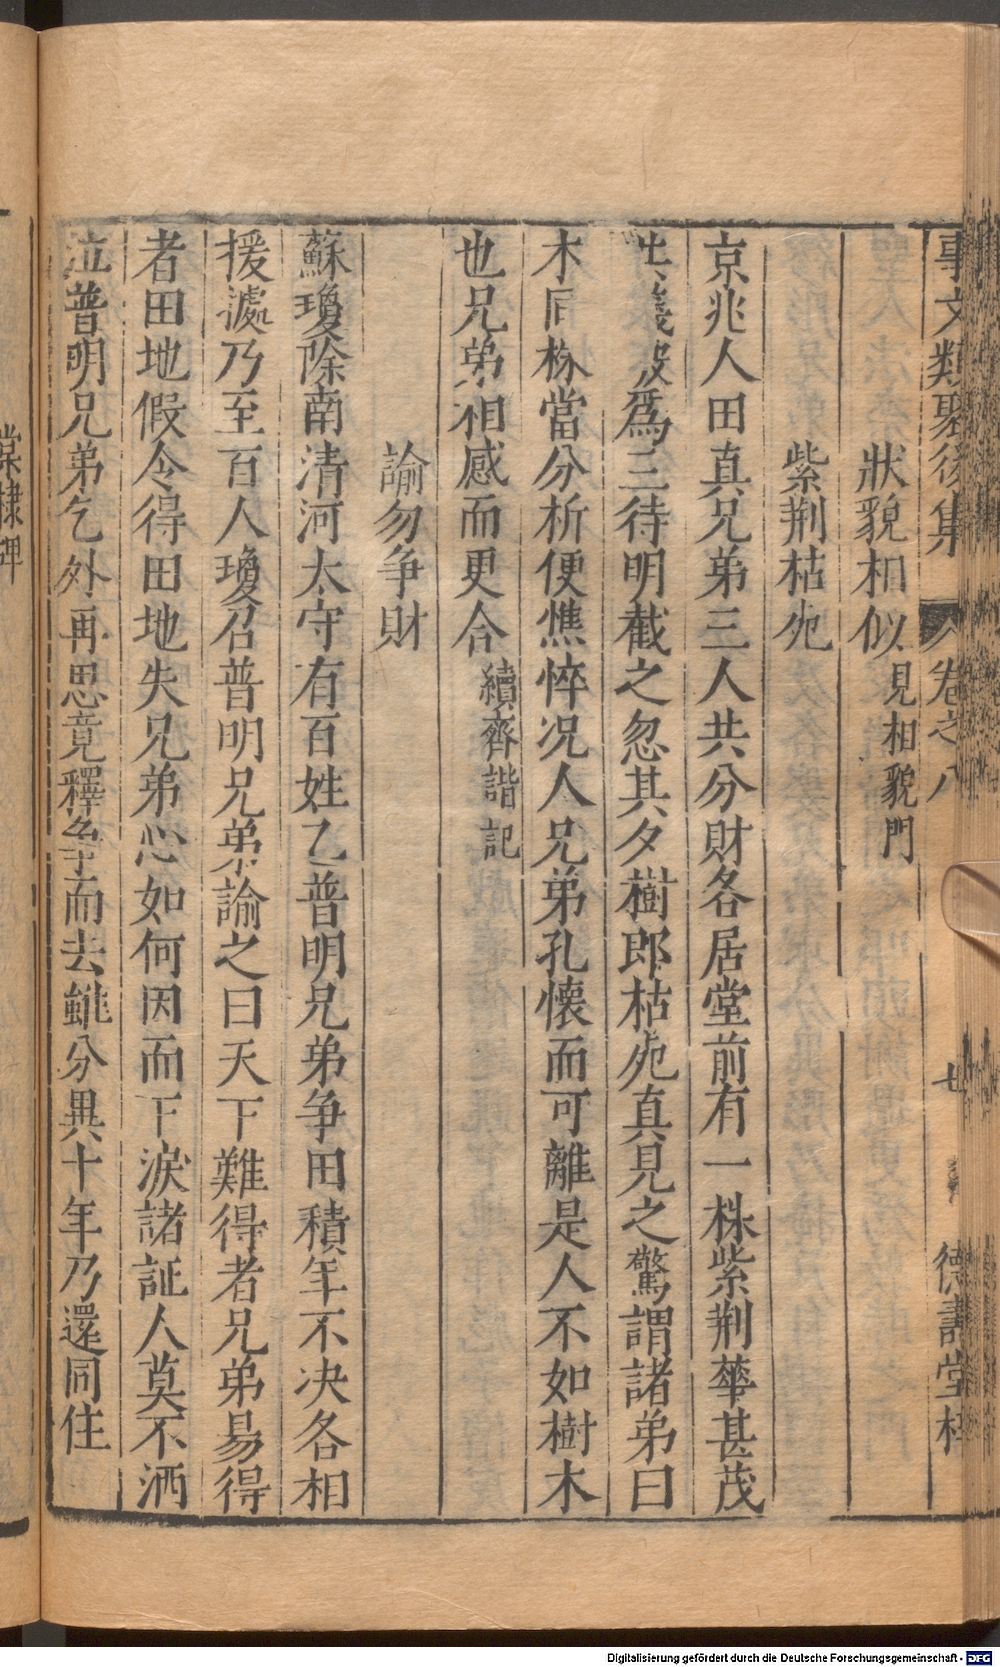 事文類聚後集 卷之八 七 德壽堂梓
狀貌相似見相貌門
紫荆枯死
京兆人田真兄弟三人共分財各居堂前有一株紫荆華甚茂
共議破爲三待明截之忽其夕樹郎枯死真見之驚謂諸弟曰
木同株當分析便憔悴况人兄弟孔懷而可離是人不如樹木
也兄弟相感而更合續齊諧記
諭勿争財
蘇瓊除南清河太守有百姓乙普明兄弟争田積年不决各相
援處乃至百人瓊召普明兄弟諭之曰天下難得者兄弟易得
者田地假令得田地失兄弟心如何因而下淚諸証人莫不洒
泣普明兄弟乞外再思竟釋争而去雖分異十年乃還同住
棠棣碑
Digitalisierung gefördert durch die Deutsche Forschungsgemeinschaft - DFG